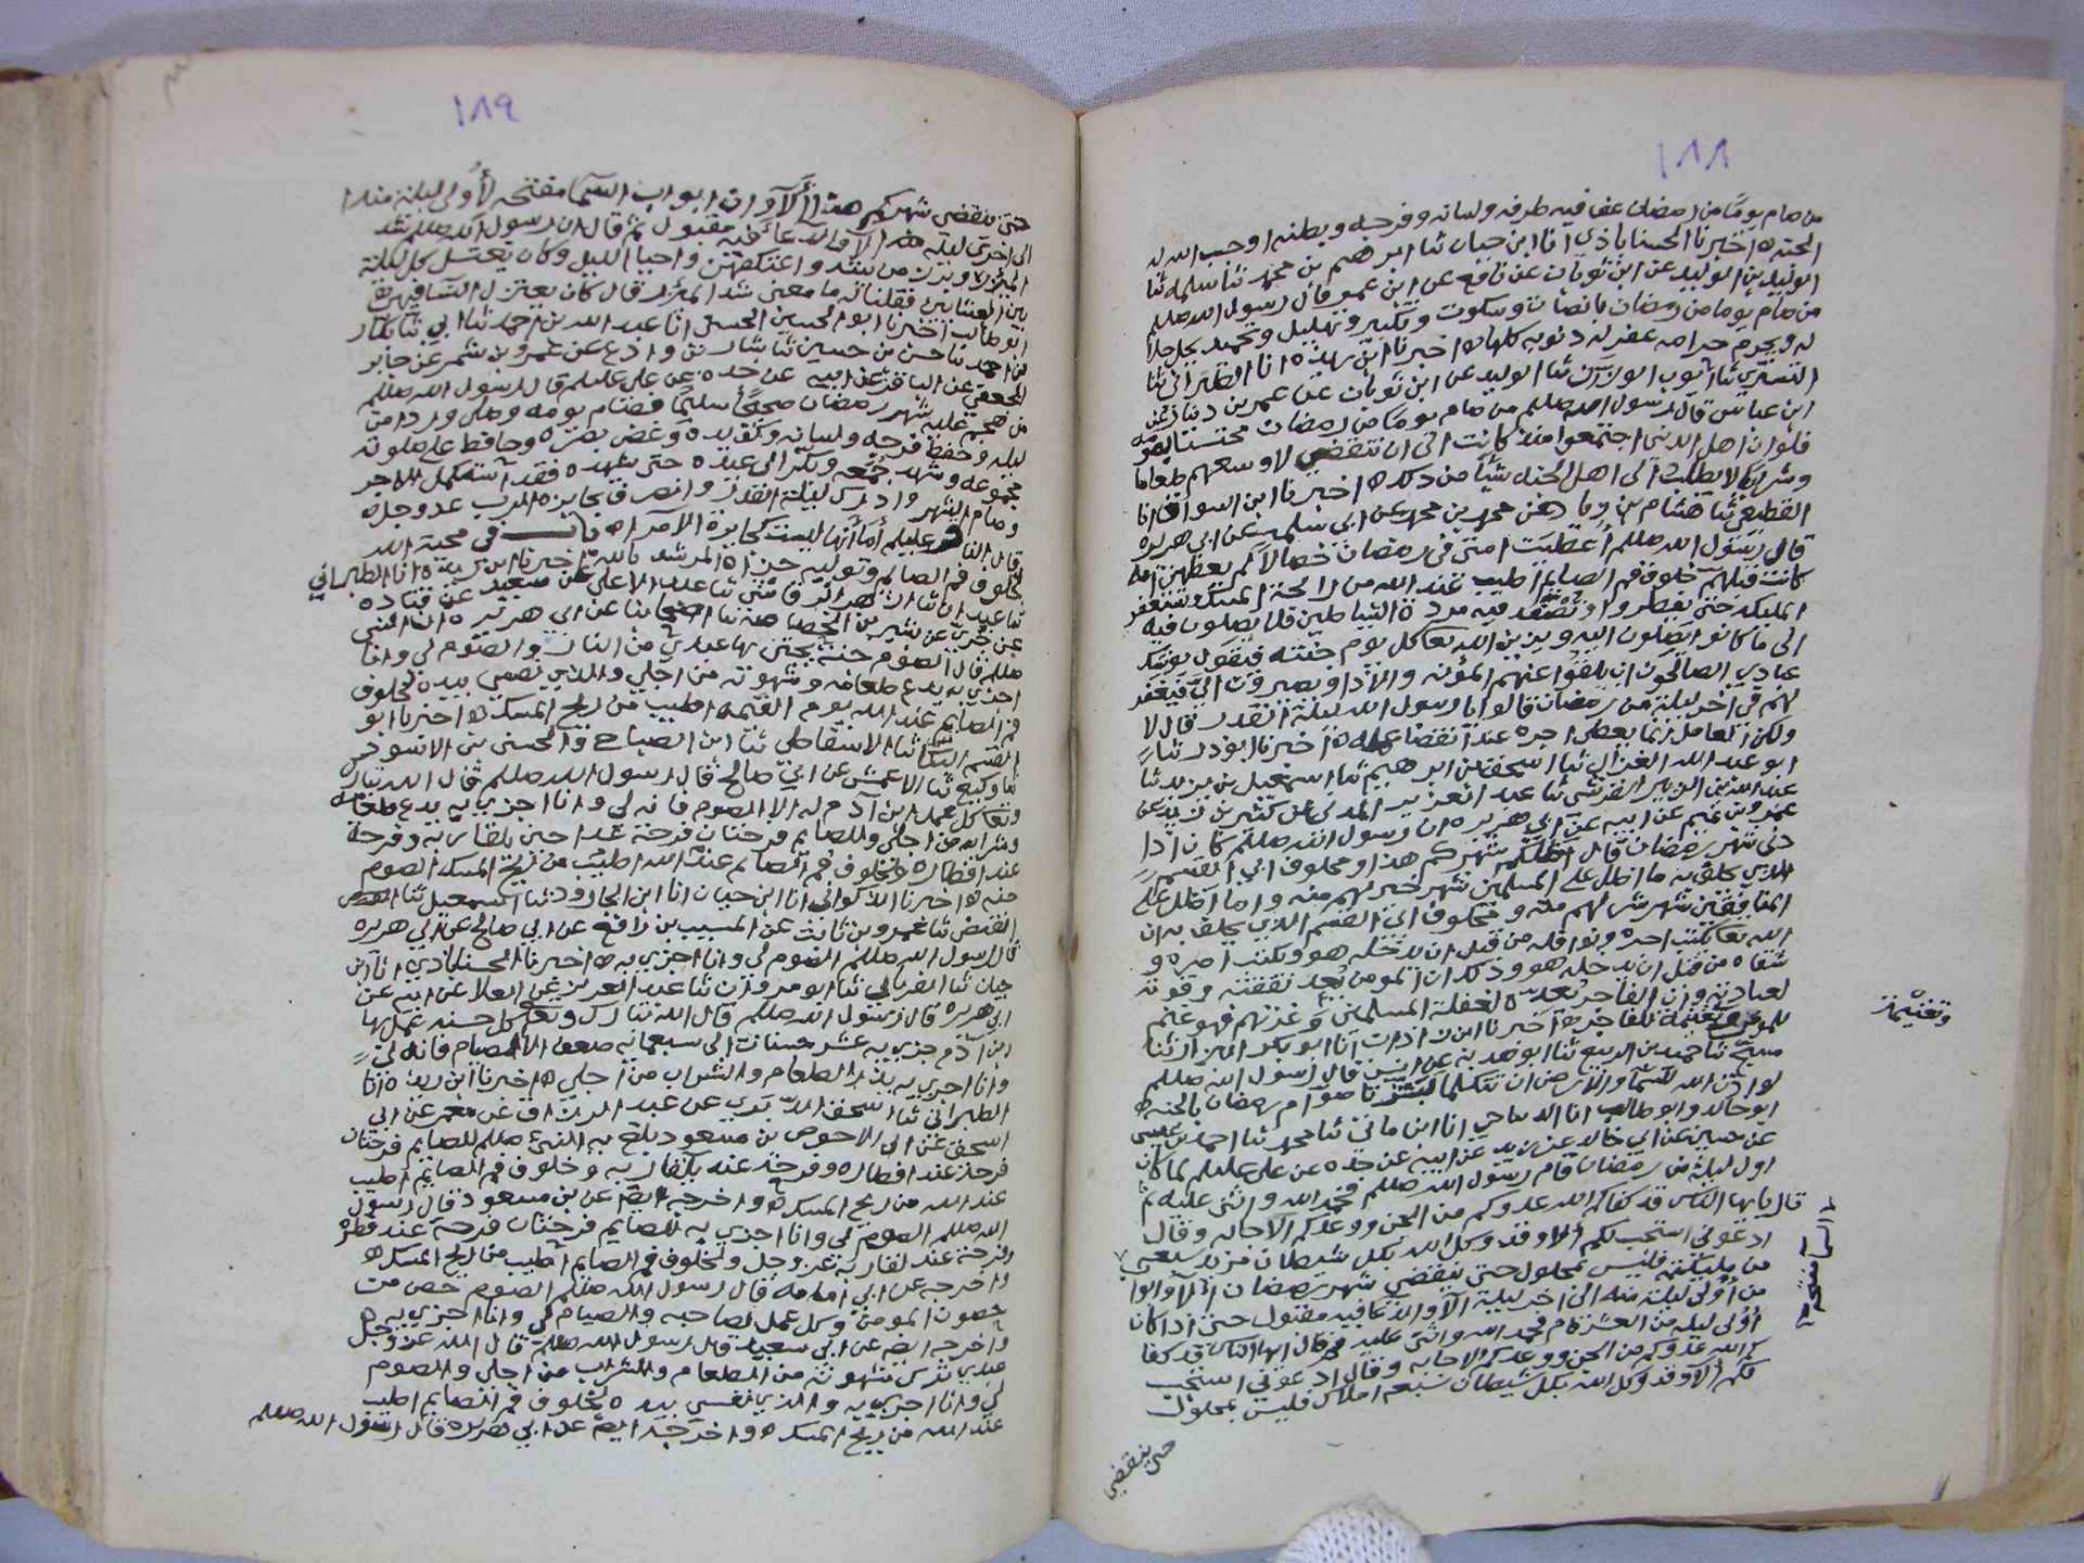 ١٨٨
من صام يوما من رمضان عف فيه طرفه ولسانه وفرجه وبطنه اوجب الله له
الجنة ه اخبرنا الحسناباذي انا ابن حيان ثنا ابرهيم بن محمد ثنا سلمه ثنا
الوليد بن الوليد عن ابن ثوبان عن نافع عن ابن عمر قال رسول الله صللم
من صام يوما من رمضان بانصات وسكوت وتكبير وتهليل وتحميد يحل حلا
له ويحرم حرامه غفر له ذنوبه كلها ه اخبرنا ابن ريذه انا الطبراني ثنا
التستري ثنا ايوب الوزان ثنا الوليد عن ابن ثوبان عن عمر بن دينار عن
ابن عباس قال رسول الله صللم من صام يوما من رمضان محتسبا
فلو ان اهل الدنيا اجتمعوا منذ كانت الى ان تنقضي لاوسعهم طعاما
وشرابا لا يطلب الى اهل الجنه شيا من ذلك ه اخبرنا ابن السواق انا
القطيعي ثنا هشام بن عن محمد بن محمد عن ابي سلمه عن ابي هريره
قال رسول الله صللم اعطيت امتي في رمضان خصالا لم يعطهن امه
كانت قبلهم خلوف فم الصايم اطيب عند الله من رائحة المسك وتستغفر
المليكه حتى يفطروا وتصفد فيه مردة الشياطين فلا يصلون فيه
الى ما كانوا يصلون اليه ويزين الله تعا كل يوم جنته فيقول يوشك
عبادي الصالحون ان يلقوا عنهم المؤنه والاذا ويصيرون الي فيغفر
لهم في اخر ليلة من رمضان قالوا يا رسول الله ليلة القدر قال لا
ولكن العامل انما يعطى اجره عند انقضا عمله ه اخبرنا ابوذر ثنا
ابو عبد الله الغزال ثنا اسحق بن ابرهيم ثنا اسمعيل بن يزيد ثنا
عبد الله بن الزبير القرشي ثنا عبد العزيز المدني عن كثير بن زيد عن
عمرو بن تميم عن ابيه عن ابي هريره ان رسول الله صللم كان اذا
دنى شهر رمضان قال اظلكم شهركم هذا ومحلوف ابي القسم
الذي يحلف به ما اظل على المسلمين شهر خير لهم منه وما اظل على
المنافقين شهر شر لهم منه ومحلوف ابي القسم الذي يحلف به ان
الله تعا يكتب اجره ونوافله من قبل ان يدخله هو ويكتب اصره و
شقاه من قبل ان يدخله هو وذلك ان المومن يعد نفقته وقوته
لعبادته وان الفاجر يعده لغفلة المسلمين وغزتهم فهو غنم
للمومن ونقيمة للفاجر ه اخبرنا ابن شاذان انا ابو بكر البزاز ثنا
مسبح ثنا حميد بن الربيع ثنا ابو هدبه عن انس قال رسول الله صللم
لو اذن الله للسما والارض ان تتكلما لبشرتا صوام رمضان بالجنه ه
ابو خالد وابو طالب انا انا ابن ماتي ثنا محمد ثنا احمد بن عيسى
عن حسين عن ابي خالد عن زيد عن ابيه عن جده عن علي عليلم لما كان
اول ليلة من رمضان قام رسول الله صللم فحمد الله واثنى عليه ثم
قال يايها الناس قد كفاكم الله عدوكم من الجن ووعدكم الاجابه وقال
ادعوني استجب لكم الا وقد وكل الله بكل شيطان مريد سبعة
من مليكته فليس بمحلول حتى ينقضي شهر رمضان الا وابوا
من اولى ليلة منه الى اخر ليلة الا والدعا فيه مقبول حتى اذا كان
اولى ليله من العشر قام فحمد الله واثنى عليه ثم قال ايها الناس قد كفا
كم الله عدوكم من الجن ووعدكم الاجابه وقال ادعوني استجب
لكم الا وقد وكل الله بكل شيطان سبعه املاك فليس بمحلول
حتى ينقضي
ب السما مفتحه
١٨٩
حتى ينقضي شهركم هذا الا وان ابواب السما مفتحه لاولى ليلة منه
الى اخرى ليله منه الا والدعا فيه مقبول ثم قال ان رسول الله صللم شد
الميزر وبرز من بيته واعتكفهن واحيا الليل وكان يغتسل كل ليلة
بين العشايين فقلنا له ما معنى شد الميزر قال كان يعتزل النسا فيهن ه
ابو طالب اخبرنا ابو الحسين الحسني انا عبد الله بن احمد ثنا ابي ثنا بكار
بن احمد ثنا حسن بن حسين ثنا عن عمرو بن شمر عن جابر
الجعفي عن الباقر عن ابيه عن جده عن علي عليلم قال رسول الله صللم
من هجم عليه شهر رمضان صحيحا سليما فصام يومه وصلى وردا من
ليله وحفظ فرجه ولسانه وكف يده وغض بصره وحافظ على صلوته
مجموعه وشهد جمعه وبكر الى عيده حتى يشهده فقد استكمل الاجر
وصام الشهر وادرك ليلة القدر وانصرف بجايزة الرب عز وجل ه
قال الباقر عليلم اما انها ليست كجايزة الامرا ه باب في محبة الله
لخلوف فم الصايم وتوليه جزاه المرشد بالله اخبرنا ابن ريذة انا الطبراني
ثنا عبدان ثنا ازهر الرقاشي ثنا عبد الاعلى عن سعيد عن قتاده
عن جري عن بشير بن الخصاصه ثنا اصحابنا عن ابي هريره ان النبي
صللم قال الصوم جنة يجتن بها عبدي من النار والصوم لي وانا
اجزي به يدع طعامه وشهوته من اجلي والذي نفسي بيده لخلوف
فم الصايم عند الله يوم القيمه اطيب من ريح المسك ه اخبرنا ابو
القسم ثنا الاسقاطي ثنا ابن الصباح والحسن بن الاسود
ثنا وكيع ثنا الاعمش عن ابي صالح قال رسول الله صللم قال الله تبارك
وتعا كل عمل ابن آدم له الا الصوم فانه لي وانا اجزي به يدع طعامه
وشرابه من اجلي وللصايم فرحتان فرحة غدا حين يلقا ربه وفرحة
عند افطاره ولخلوف فم الصايم عند الله اطيب من ريح المسك الصوم
جنه ه اخبرنا الاكواني انا ابن حيان انا ابن الجارود ثنا اسمعيل ثنا
الفيض ثنا عمرو بن ثابت عن المسيب بن رافع عن ابي صالح عن ابي هريره
قال رسول الله صللم الصوم لي وانا اجزي به ه اخبرنا الحسناباذي انا ابن
حيان ثنا الفريابي ثنا ابو مروان ثنا عبد العزيز عن العلا عن ابيه عن
ابي هريره قال رسول الله صللم قال الله تبارك وتعا كل حسنه عملها
ابن آدم جزي به عشر حسنات الى سبعمايه ضعف الا الصيام فانه لي
وانا اجزي به يذر الطعام والشراب من اجلي ه اخبرنا ابن ريذه انا
الطبراني ثنا اسحق الدبري عن عبد الرزاق عن معمر عن ابي
اسحق عن ابي الاحوص بن مسعود يبلغ به النبي صللم للصايم فرحتان
فرحة عند افطاره وفرحة عند يلقا ربه وخلوف فم الصايم اطيب
عند الله من ريح المسك ه واخرجه ايضا عن بن مسعود قال رسول
الله صللم الصوم لي وانا اجزي به للصايم فرحتان فرحة عند فطره
وفرحة عند لقا ربه عز وجل ولخلوف فم الصايم اطيب من ريح المسك ه
واخرجه عن ابي امامه قال رسول الله صللم الصوم حصن من
حصون المومن وكل عمل لصاحبه والصيام لي وانا اجزي به ه
واخرجه ايضا عن ابي سعيد قال رسول الله صللم قال الله عز وجل
عبدي ترك شهوته من الطعام والشراب من اجلي والصوم
لي وانا اجزي به والذي نفسي بيده لخلوف فم الصايم اطيب
عند الله من ريح المسك ه واخرجه ايضا عن ابي هريره قال رسول الله صللم